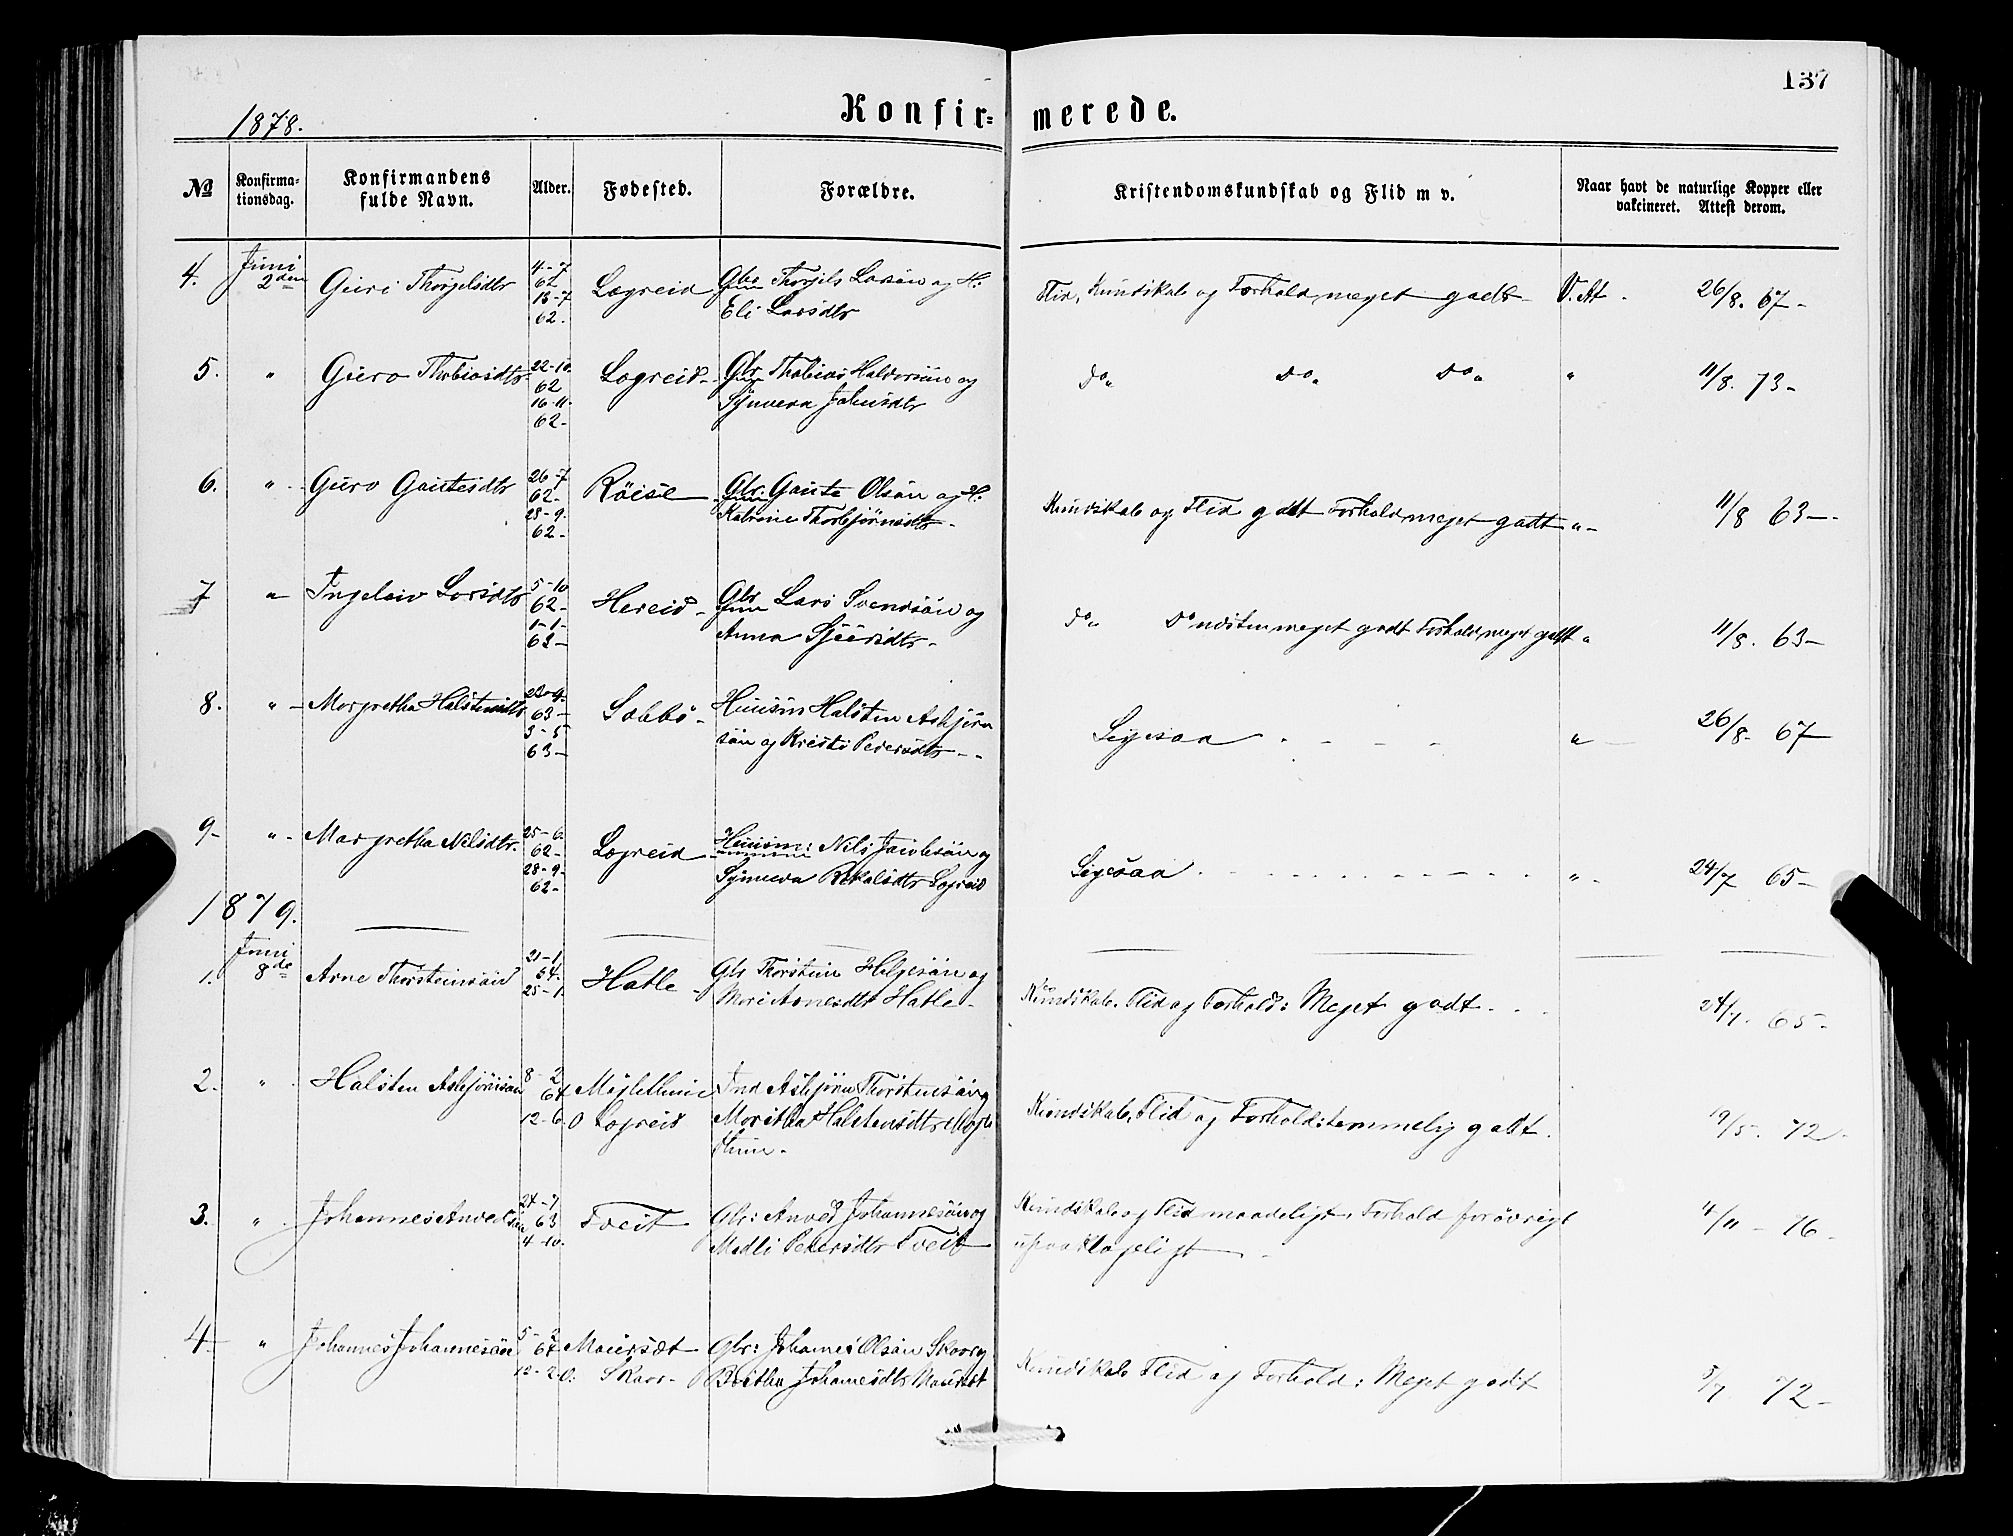 137
1878.
Konfirmerede.
№
Konfirmationsdag.
Konfirmandens fulde Navn.
Alder.
Fødested.
Forældre.
Kristendomskundskab og Flid m v.
Naar havt de naturlige Kopper eller vakcineret. Attest derom.
4. Juni 2den Guri Thorgilsdtr 4-7 62 13-7 62. Lægreid Gbr Thorgils Larsön og H:
Eli Larsdtr
Flid, Kundskab og Forhold meget godt - V. Att. 26/8. 67-
5. " Guro Thobiasdtr 22-10 62 16-11 62- Lægreid- Gbr Thobias Haldorsön og
Synneva Johnsdtr
do" do" do" " 11/8. 73-
6. " Guro Gautesdtr 26-7 62- 28-9. 62- Röise Gbr: Gaute Olsön og H:
Katrine Thorbjörnsdtr-
Kundskab og Flid godt Forhold meget godt " 11/8 63-
7 " Ingeleiv Larsdtr 5-10 62- 1-1- 63- Hereid- Gbr Lars Svendsön og
Anna Sjursdtr-
do" do næsten meget godt Forhold meget godt " 11/8. 63-
8. " Margretha Halstensdtr 63- 3-5 63- Sæbbö- Huusm Halsten Asbjörn
sön og Kristi Pedersdtr--
Ligesaa " 26/8- 67
9- " Margretha Nilsdtr. 25-6. 62- 28-9- 62- Lægreid Huusm: Nils Jacobsön og
Synneva Lægreid
Ligesaa " 24/7 65-
1879.
1. Juni 8de Arne Thorsteinsön 21-1 64. 25-1. Hatle- Gbr Thorstein Helgesön og
Mari Arnesdtr Hatle-
Kundskab. Flid og Forhold: Meget godt. 24/7. 65-
2. " Halsten Asbjörnsön 8-2 64 12-6. Asbjörn Thorstensön og
O Lægreid Maritha Halstensdtr
Kundskab, Flid og Forhold: temmelig godt. 19/5. 72-
3. " Johannes Anvedsön 24-7 63 4-10. Tveit Gbr: Anved Johannesön og
Madli Pedersdtr Tveit
Kundskab og Flid maadeligt, Forhold forövrigt
upaaklageligt 4/11- 76-
4- " Johannes Johannesön 5-2 64 12-2 Maursæt Gbr: Johannes Olsön Skaar og
O. Skaar- Britha Johannesdtr Maursæt
Kundskab Flid og Forhold: Meget godt 5/7 72-